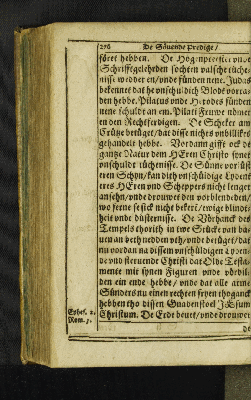 276 De Sövende Predige/
föret hebben. De Hogenprester vnde
Schrifftgelehrden sochten valsche tüche-
nisse wedder en/ vnde fünden nene. Judas
bekennet dat he vnschuldich Blodt vorra-
den hebbe. Pilatus vnde Herodes fünden
nene schuldt an em. Pilati Frouwe nömet
en den Rechtferdigen. De Scheker am
Crütze betüget/ dat disse nichtes vnbillikes
gehandelt hebbe. Vordann gifft ock de
gantze Natur dem HEren Christo syner
vnschuldt tüchenisse. De Sünne vorlüst
eren Schyn/ kan dith vnschüldige Lydent
eres HEren vnd Scheppers nicht lenger
ansehn/ vnde drouwet den vorblendeden/
wo ferne se sick nicht bekere/ ewige blindt-
heit vnde düsternisse. De Vörhanck des
Tempels thorith in twe Stücke van bä-
uen an beth nedden tho/ vnde betüget/ dat
nu vordan na dissem vnschüldigen Lyden-
de vnd steruende Christi dat Olde Testa-
mente mit synen Figuren vnde vörbil-
den ein ende hebbe/ vnde dat alle arme
Sünders nu einen rechten fryen thoganck
hebben tho dissen Gnadenstoel JEsum
Christum. De Erde beuet/ vnde drouwet
Ephes. 2.
Rom. 5.
de